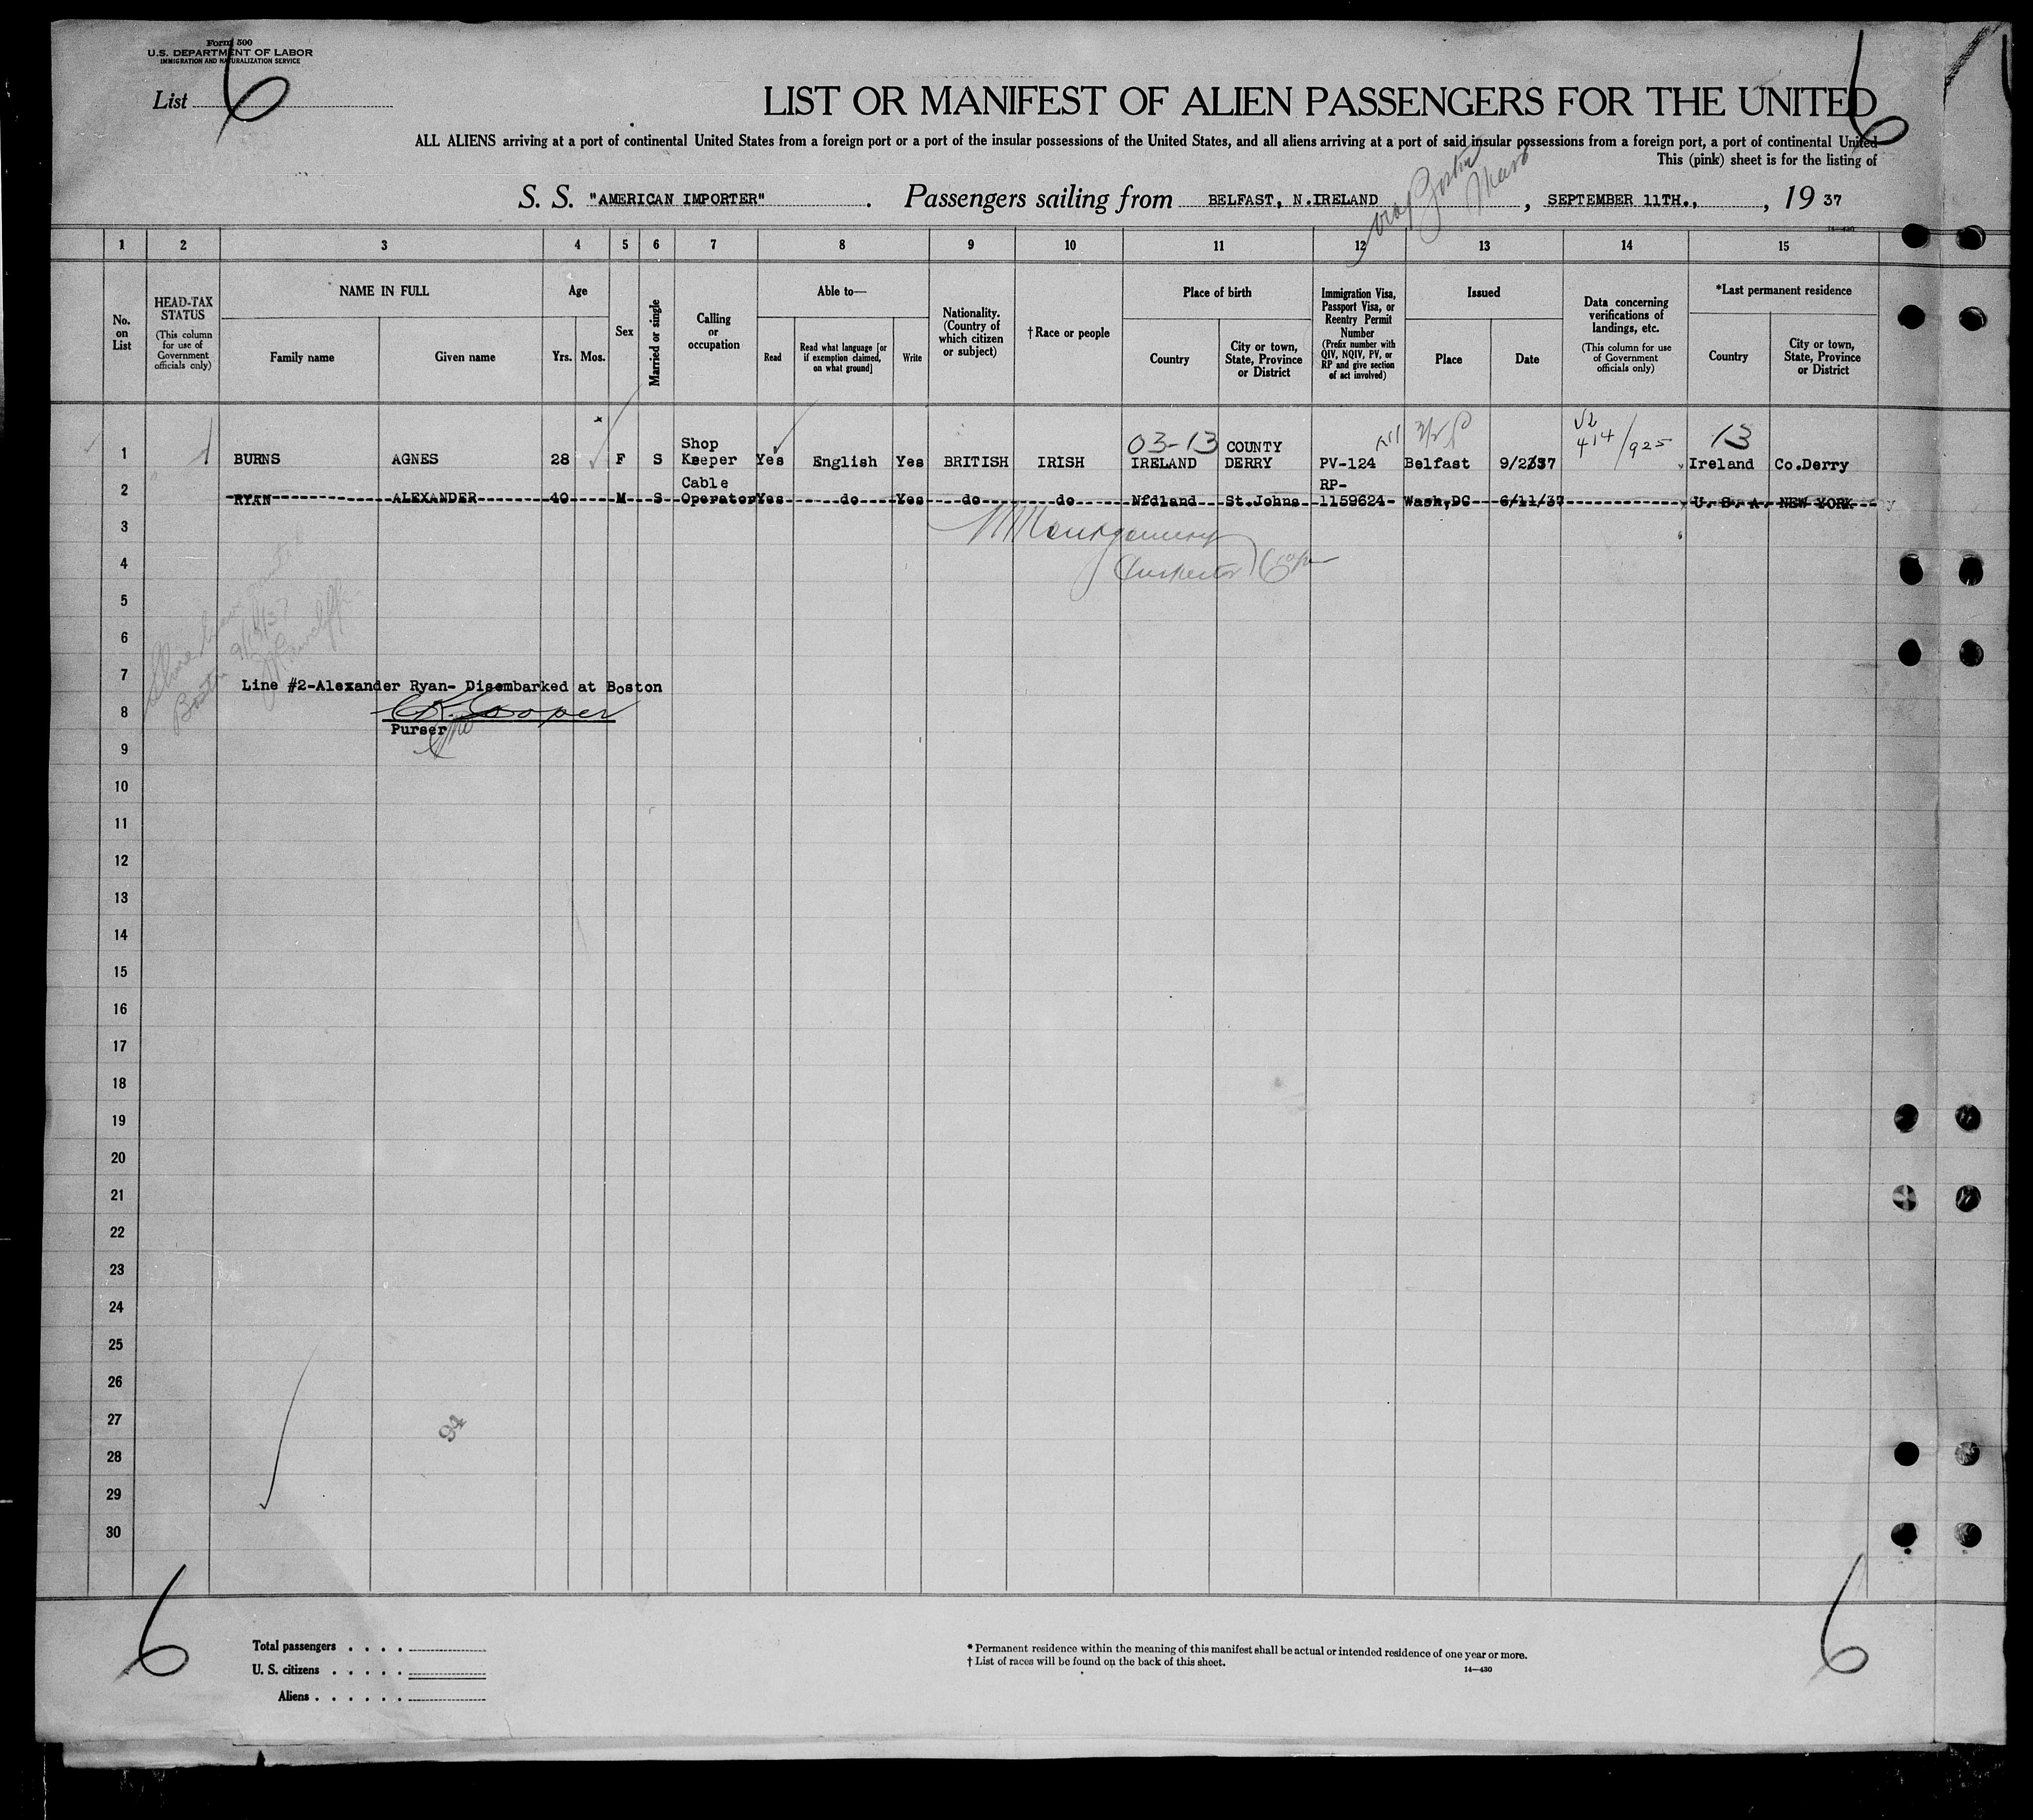 Form 500
U.S. DEPARTMENT OF LABOR
IMMIGRATION AND NATURALIZATION SERVICE
List 6
6
LIST OR MANIFEST OF ALIEN PASSENGERS FOR THE UNITED
ALL ALIENS arriving at a port of continental United States from a foreign port or a port of the insular possessions of the United States, and all aliens arriving at a port of said insular possessions from a foreign port, a port of continental United
This (pink) sheet is for the listing of
via Boston Mass
S. S. "AMERICAN IMPORTER" . Passengers sailing from BELFAST, N.IRELAND , SEPTEMBER 11TH., , 19 37
14—430
1 2 3 4 5 6 7 8 9 10 11 12 13 14 15
No. on List
HEAD-TAX STATUS
(This column for use of Government officials only)
NAME IN FULL
Family name
Given name
Age
Yrs. Mos.
Sex
Married or single
Calling or occupation
Able to—
Read
Read what language [or if exemption claimed, on what ground]
Write
Nationality. (Country of which citizen or subject)
†Race or people
Place of birth
Country
City or town, State, Province or District
Immigration Visa, Passport Visa, or Reentry Permit Number
(Prefix number with QIV, NQIV, PV, or RP and give section of act involved)
Issued
Place
Date
Data concerning verifications of landings, etc.
(This column for use of Government officials only)
*Last permanent residence
Country
City or town, State, Province or District
03-13 414/925 13
1 BURNS AGNES 28 F S Shop Keeper Yes English Yes BRITISH IRISH IRELAND COUNTY DERRY PV-124 Belfast Ireland Co.Derry
2 RYAN ALEXANDER 40 M S Cable Operator Yes do Yes do do Nfdland St.Johns RP-1159624 Wash,DC 6/11/37 U. S. A. NEW YORK
3
Montgomery
4
Inspector
5
6
Boston
7
Line #2-Alexander Ryan- Disembarked at Boston
8
Cooper
Purser
9
10
11
12
13
14
15
16
17
18
19
20
21
22
23
24
25
26
27
94
28
29
30
6
6
Total passengers . . . .
U. S. citizens . . . . .
Aliens . . . . . .
* Permanent residence within the meaning of this manifest shall be actual or intended residence of one year or more.
† List of races will be found on the back of this sheet.
14—430